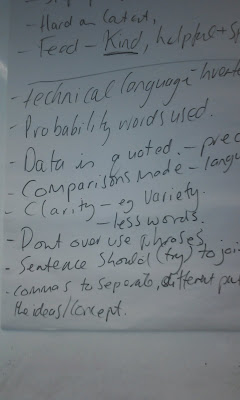 - Hard on Content,
- Feed - Kind, helpful + Sp
- technical language - inverte
- Probability words used.
- Data is quoted. - prec
- Comparisons made - langu
- Clarity - eg variety.
- less words.
- Dont over use phrases
- Sentence should (try) to joi
- commas to separate, different pa
the ideas/concept.